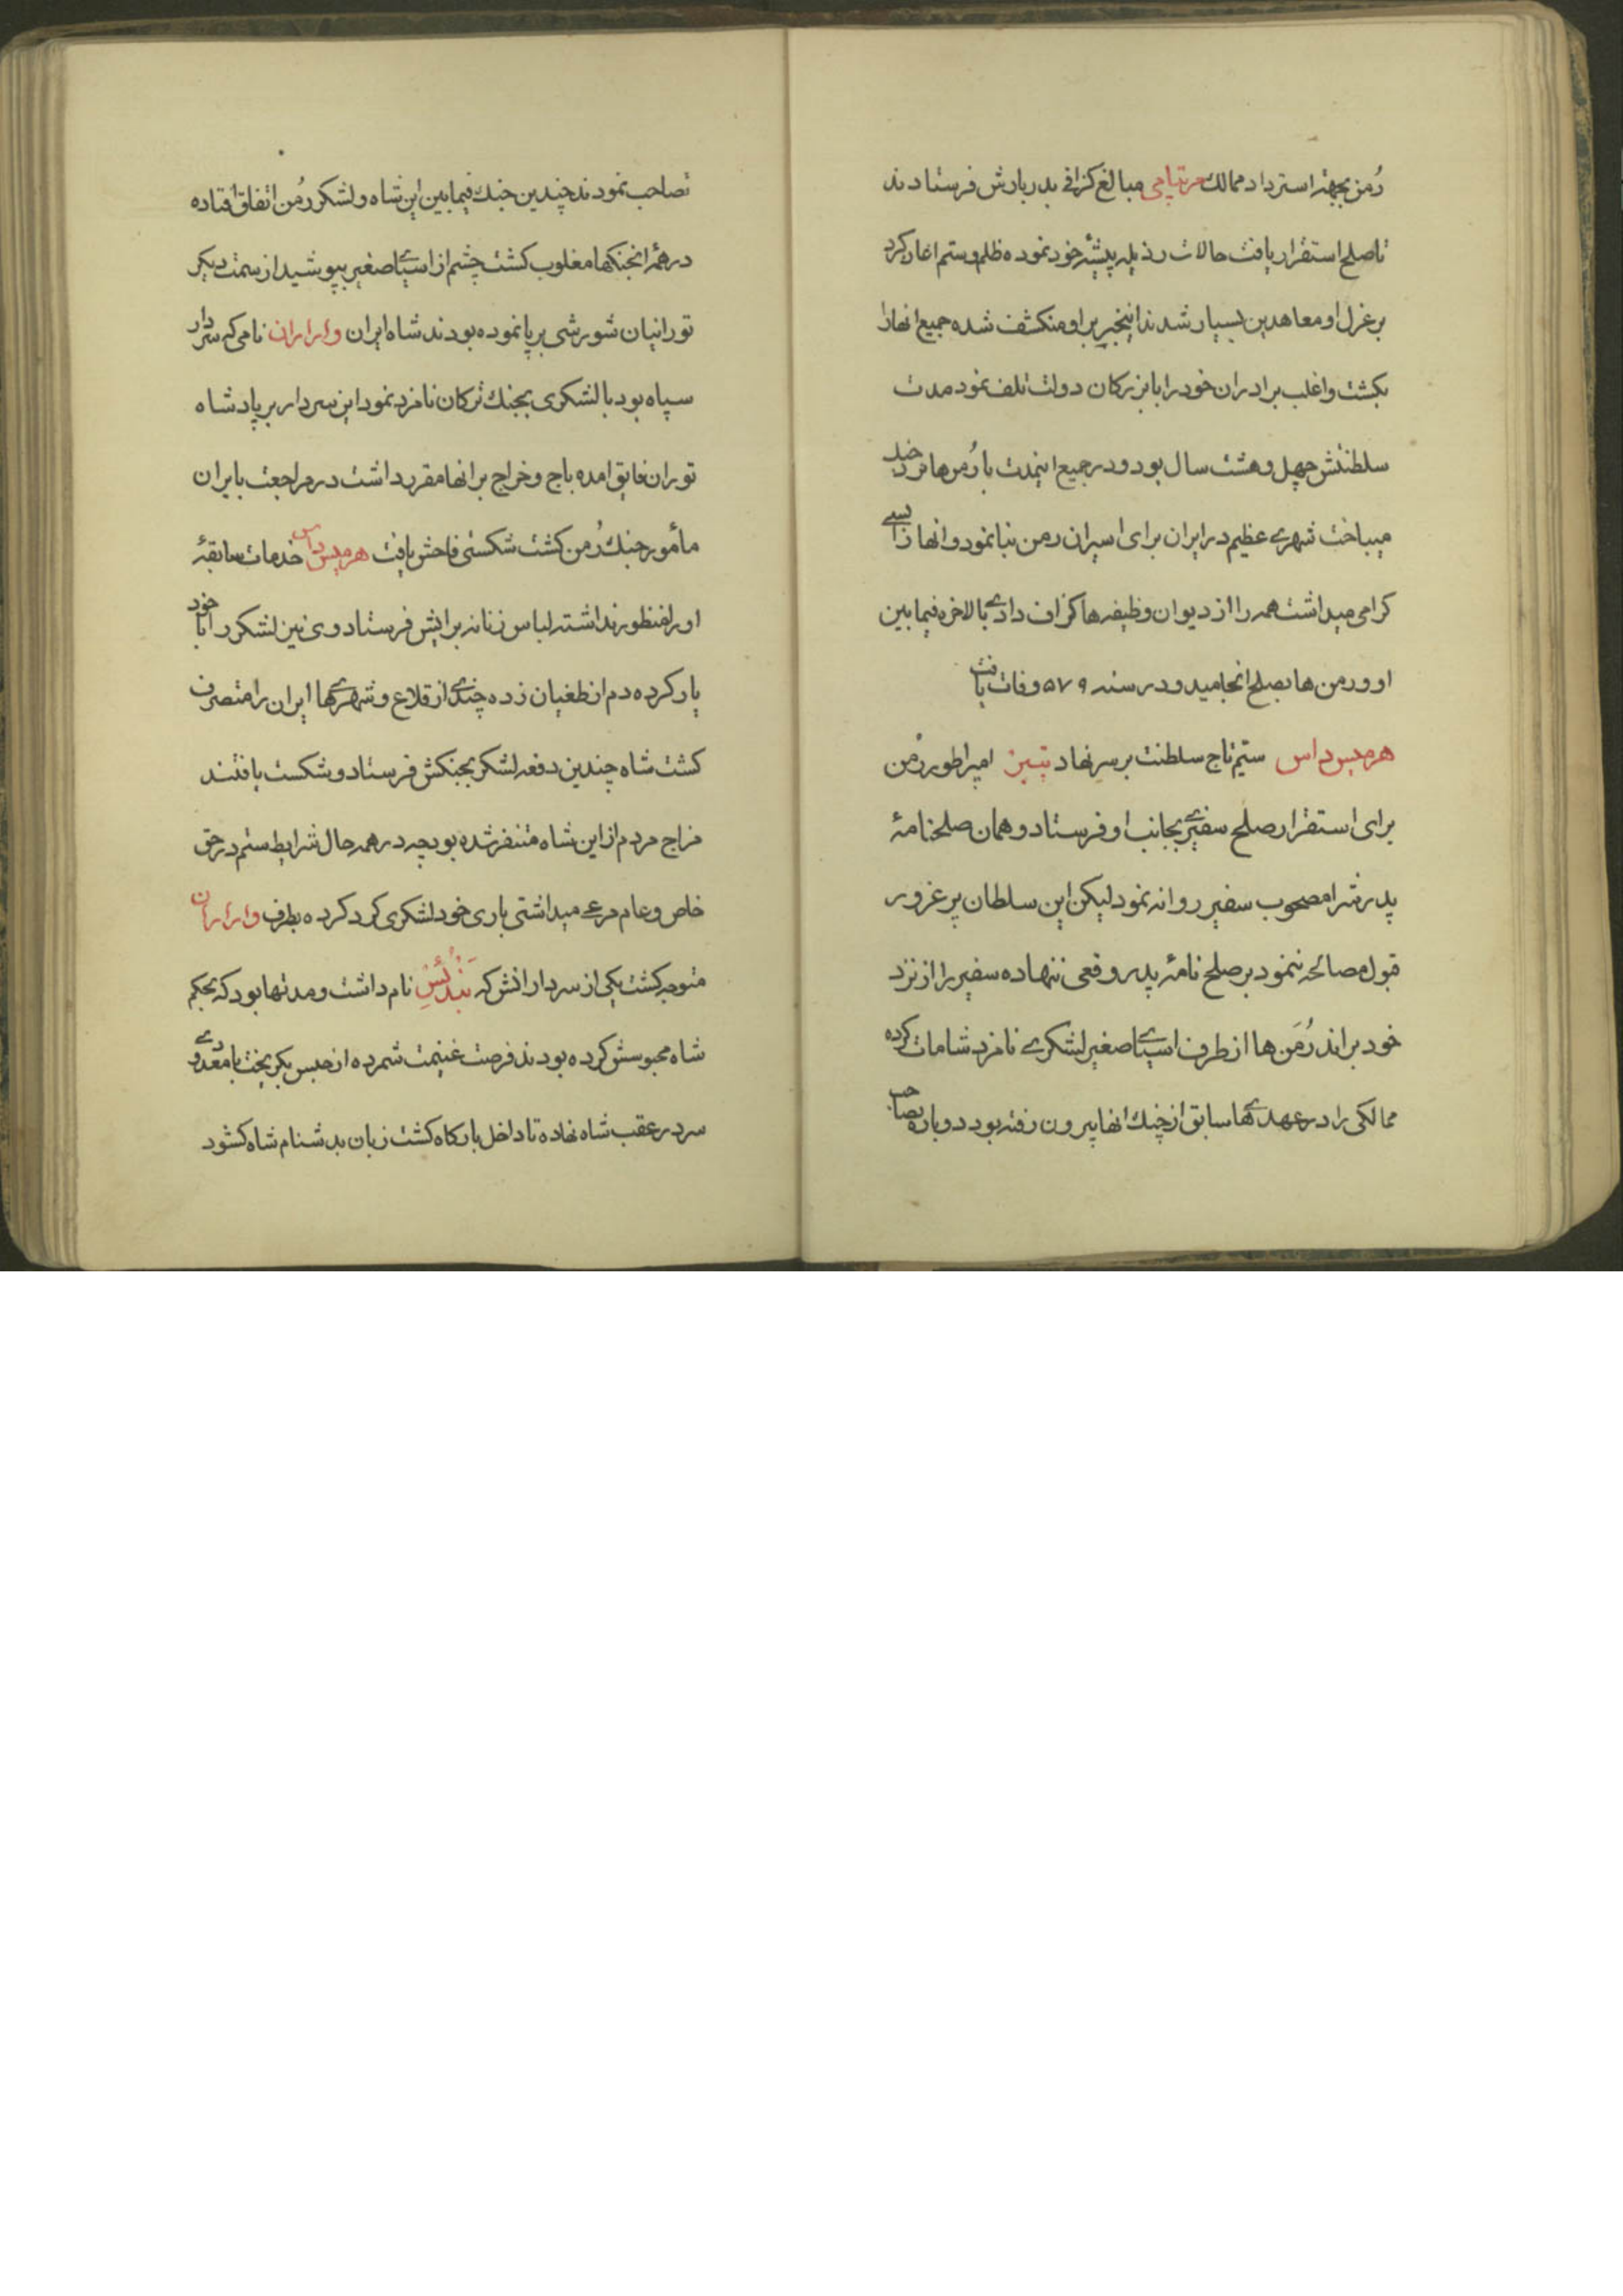 رُمن بجهة استرداد ممالک مزبتامی مبالغ کزافی بدربارش فرستادند
تا صلح استقرار یافت حالات رذیله پیشهٔ خود نموده ظلم و ستم اغاز کرد
بر عزل او معاهدین بسیار شدند اینخبر بر او منکشف شده جمیع انها را
بکشت و اغلب برادران خود را با بزرکان دولت تلف نمود مدت
سلطنتش چهل و هشت سال بود و در جمیع اینمدت با رُمن‌ها نرد خد
میباخت شهری عظیم در ایران برای اسیران رمن بنا نمود و انها را بسی
کرامی میداشت همه را از دیوان وظیفه‌ها کزاف دادی بالاخره فیما بین
او و رمن‌ها بصلح انجامید و در سنه ۵۷۹ وفات یافت
هرمیس‌داس ستیم تاج سلطنت بر سر نهاد تیبیز امپراطور رُمن
برای استقرار صلح سفیری بجانب او فرستاد و همان صلحنامهٔ
پدرش را مصحوب سفیر روانه نمود لیکن این سلطان پر غرور
قبول مصالحه ننمود بر صلح نامهٔ پدر وقعی ننهاده سفیر را از نزد
خود براند رُمَن‌ها از طرف اسیای صغیر لشکری نامزد شامات کرده
ممالکی را در عهدی‌ها سابق از چنك انها بیرون رفته بود دوباره تصاحب
تصاحب نمودند چندین جنك فیما بین این شاه و لشکر رُمن اتفاق افتاده
در همهٔ انجنکها مغلوب کشت چشم از اسیای صغیر بپوشید از سمت دیکر
تورانیان شورشی بر پا نموده بودند شاه ایران واراران نامی که سردار
سپاه بود با لشکری بجنك ترکان نامزد نمود این سردار بر پادشاه
توران فایق امده باج و خراج بر انها مقرر داشت در مراجعت بایران
مأمور جنك رُمن کشت شکستی فاحش یافت هرمیس‌داس خدمات سابقهٔ
او را منظور نداشته لباس زنانه برایش فرستاد وی نیز لشکر را با خود
یار کرده دم از طغیان زده چندی از قلاع و شهری‌ها ایران را متصرف
کشت شاه چندین دفعه لشکر بجنکش فرستاد و شکست یافتند
مزاج مردم از این شاه متنفر شده بود چه در همه حال شرایط ستم در حق
خاص و عام مرعی میداشتی باری خود لشکری کرد کرده بطرف واراران
متوجه کشت یکی از سردارانش که بَندُلُسِ نام داشت و مدتها بود که بحکم
شاه محبوسش کرده بودند فرصت غنیمت شمرده از حبس بکریخت با معدودی
سر در عقب شاه نهاده تا داخل بارکاه کشت زبان بدشنام شاه کشود